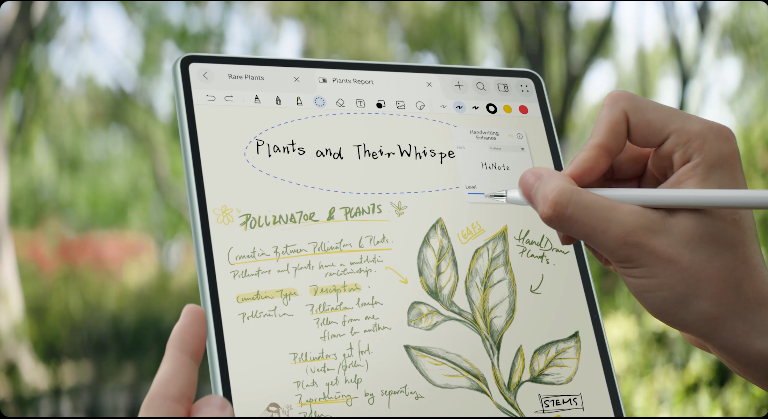 Rare Plants
Plants Report
Handwriting
Enhance
HiNote
Level
Plants and Their Whispe
POLLINATOR & PLANTS
Connection Between Pollinators & Plants.
Pollinators and plants have a
relationship.
LEAFS
HandDraw
Plants.
Connection Type Description
Pollination Pollinators transfer
Pollen from one
flower to another
Pollinators get food.
(Nectar/pollen)
Plants get help
Reproducing by separating
STEMS